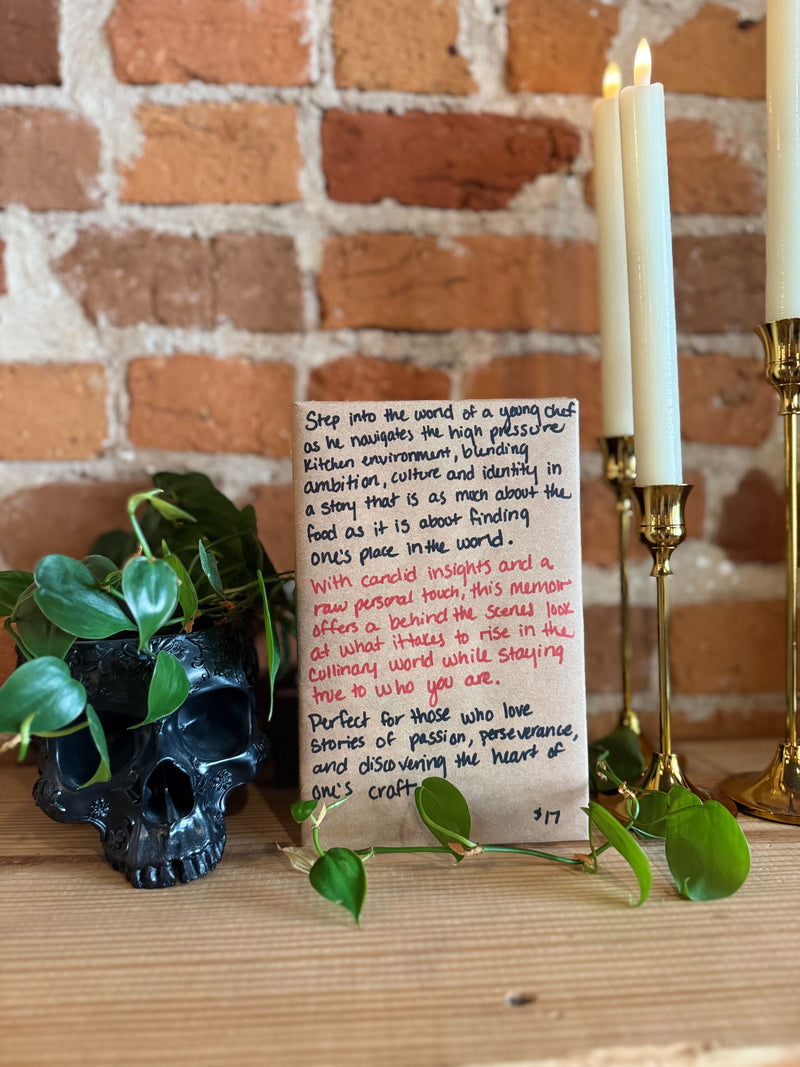 Step into the world of a young chef
as he navigates the high pressure
kitchen environment, blending
ambition, culture and identity in
a story that is as much about the
food as it is about finding
one's place in the world.
With candid insights and a
raw personal touch, this memoir
offers a behind the scenes look
at what it takes to rise in the
cullinary world while staying
true to who you are.
Perfect for those who love
stories of passion, perseverance,
and discovering the heart of
one's craft.
$17